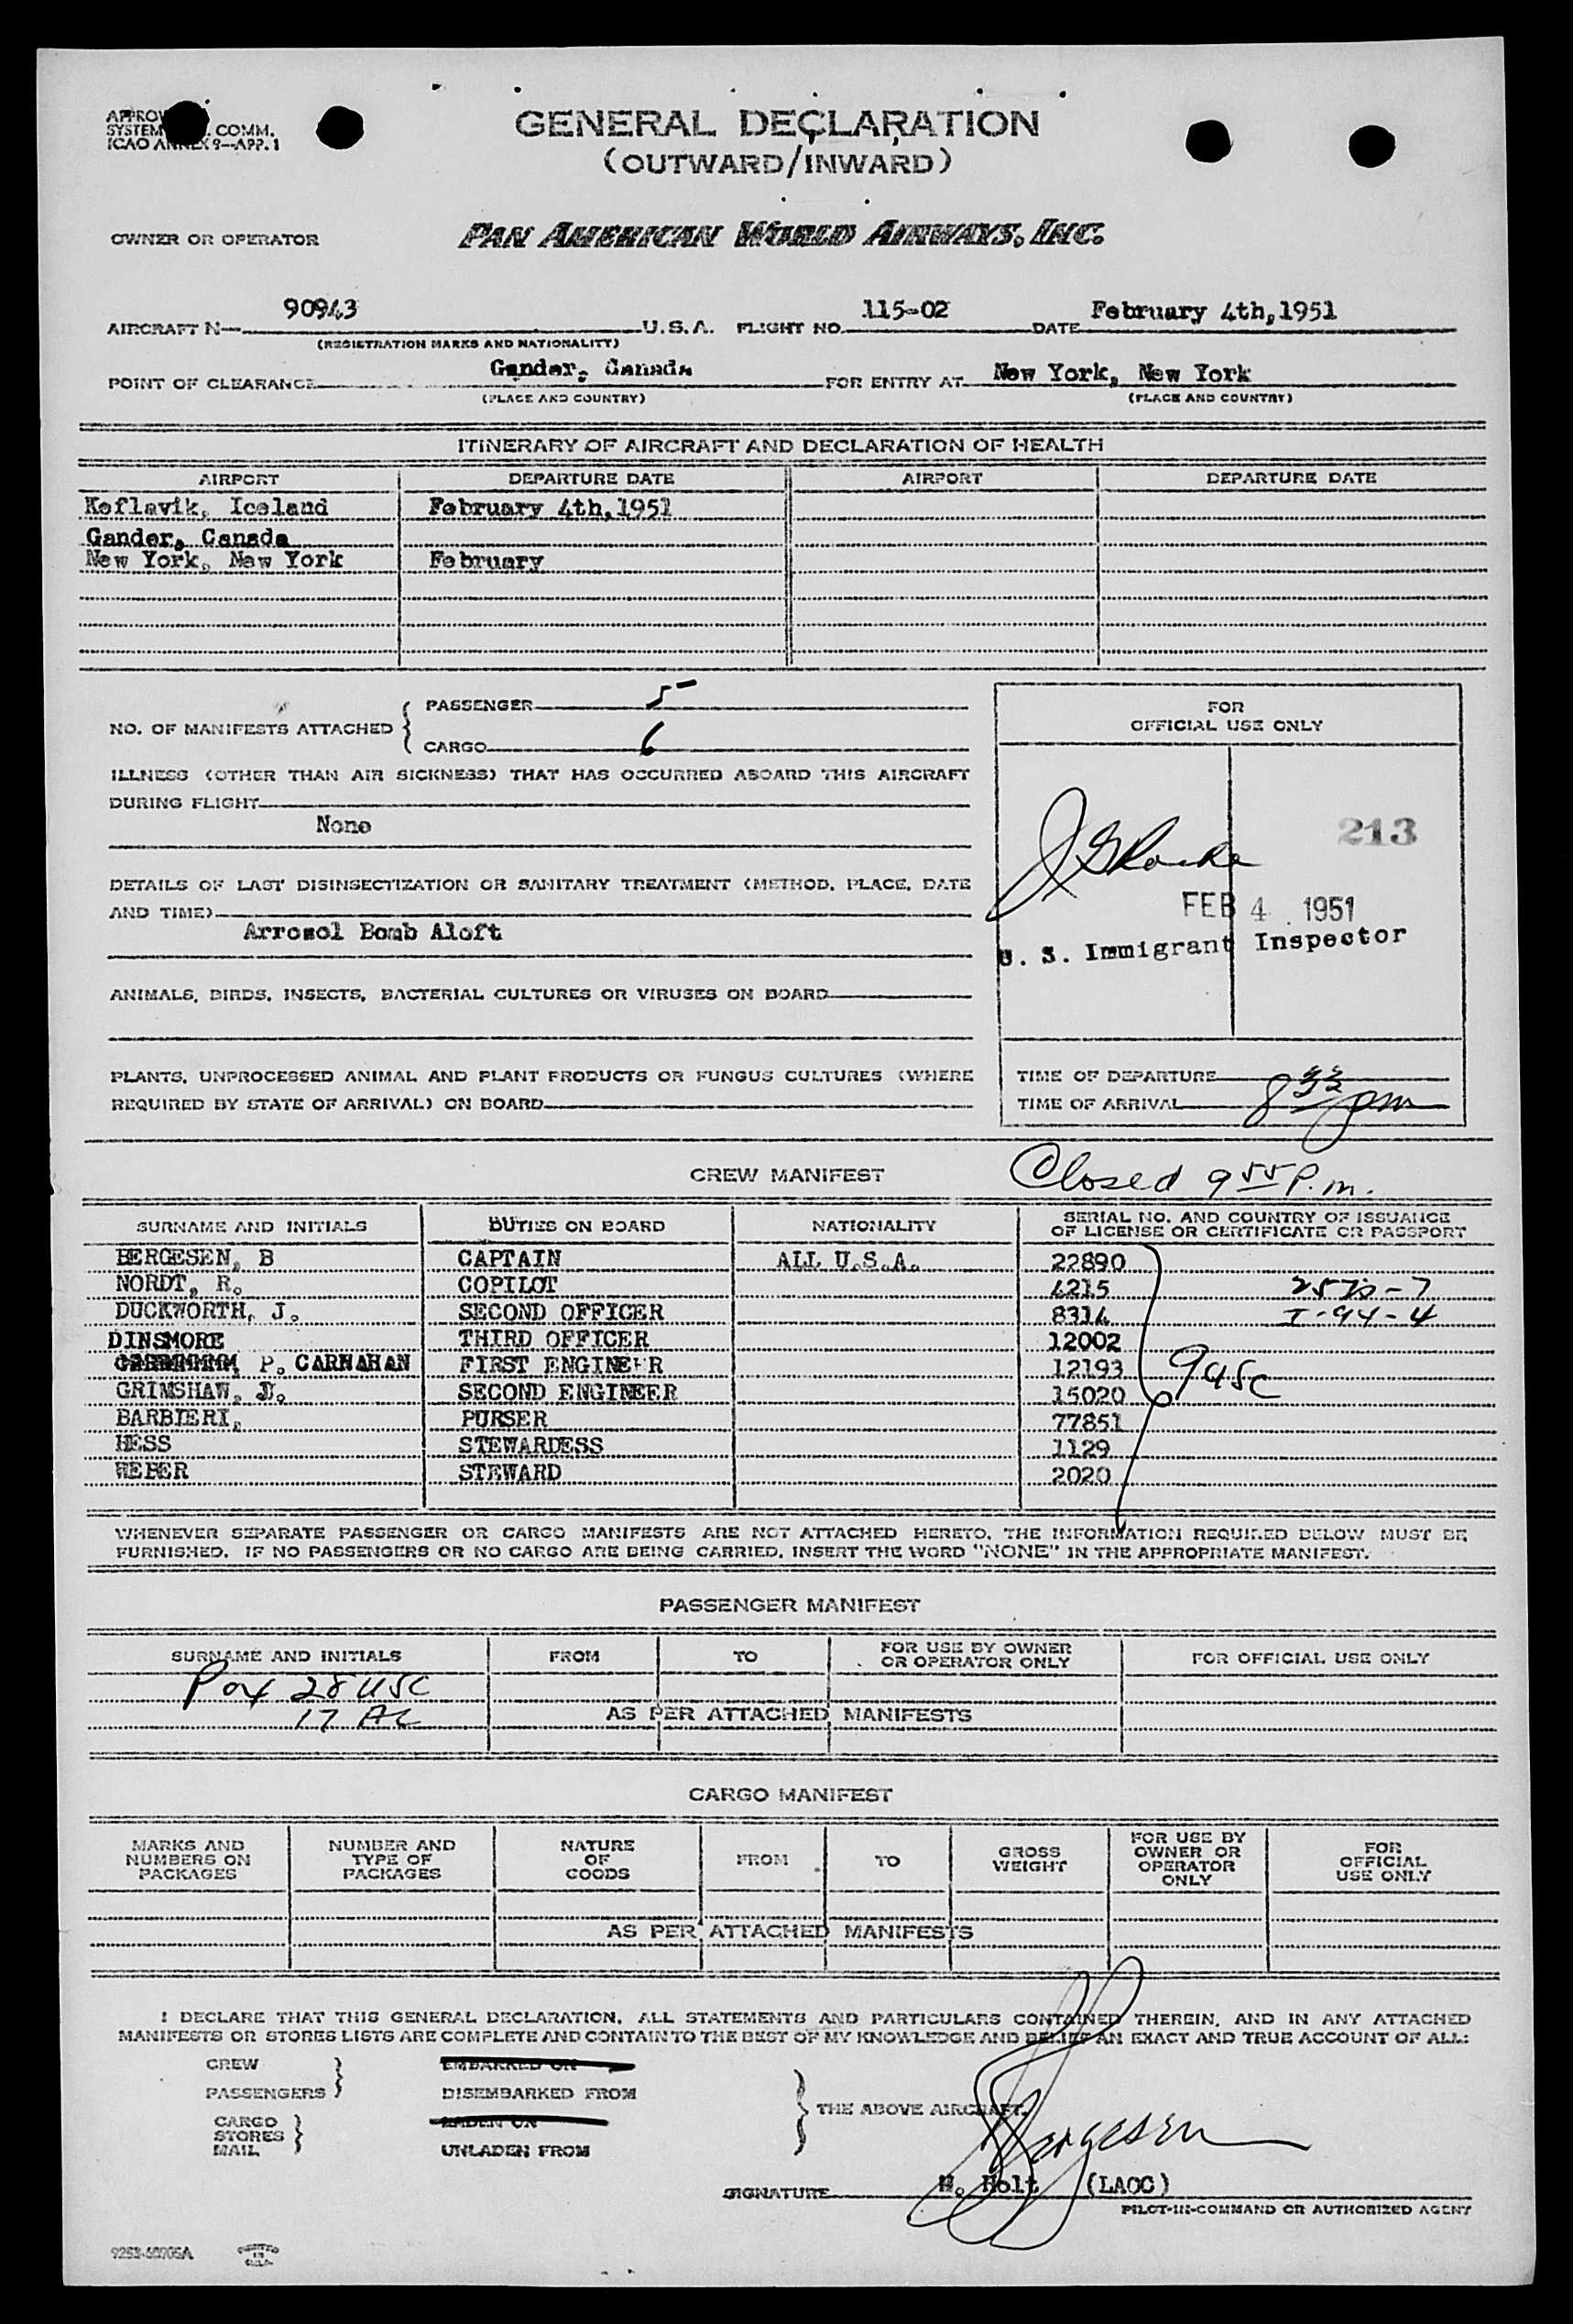 GENERAL DECLARATION
(OUTWARD/INWARD)
APPROV
SYSTEM COMM.
ICAO ANNEX 9—APP. 1
OWNER OR OPERATOR PAN AMERICAN WORLD AIRWAYS, INC.
AIRCRAFT N— 90943 U.S.A. FLIGHT NO. 115-02 DATE February 4th,1951
(REGISTRATION MARKS AND NATIONALITY)
POINT OF CLEARANCE Gander, Canada FOR ENTRY AT New York, New York
(PLACE AND COUNTRY) (PLACE AND COUNTRY)
ITINERARY OF AIRCRAFT AND DECLARATION OF HEALTH
AIRPORT DEPARTURE DATE AIRPORT DEPARTURE DATE
Keflavik, Iceland February 4th,1951
Gander, Canada
New York, New York February
NO. OF MANIFESTS ATTACHED { PASSENGER 5
CARGO 6
ILLNESS (OTHER THAN AIR SICKNESS) THAT HAS OCCURRED ABOARD THIS AIRCRAFT
DURING FLIGHT
None
DETAILS OF LAST DISINSECTIZATION OR SANITARY TREATMENT (METHOD, PLACE, DATE
AND TIME)
Arrosol Bomb Aloft
ANIMALS, BIRDS, INSECTS, BACTERIAL CULTURES OR VIRUSES ON BOARD
PLANTS, UNPROCESSED ANIMAL AND PLANT PRODUCTS OR FUNGUS CULTURES (WHERE
REQUIRED BY STATE OF ARRIVAL) ON BOARD
FOR
OFFICIAL USE ONLY
213
FEB 4 1951
U. S. Immigrant Inspector
TIME OF DEPARTURE
TIME OF ARRIVAL 8 pm
Closed 9 55 P.m.
CREW MANIFEST
SURNAME AND INITIALS DUTIES ON BOARD NATIONALITY SERIAL NO. AND COUNTRY OF ISSUANCE
OF LICENSE OR CERTIFICATE OR PASSPORT
BERGESEN, B CAPTAIN ALL U.S.A. 22890
NORDT, R. COPILOT 4215
DUCKWORTH, J. SECOND OFFICER 8314 I-94-4
DINSMORE THIRD OFFICER 12002
P. CARNAHAN FIRST ENGINEER 12193 9 USC
GRIMSHAW, D. SECOND ENGINEER 15020
BARBIERI, PURSER 77851
HESS STEWARDESS 1129
WEBER STEWARD 2020
WHENEVER SEPARATE PASSENGER OR CARGO MANIFESTS ARE NOT ATTACHED HERETO, THE INFORMATION REQUIRED BELOW MUST BE
FURNISHED. IF NO PASSENGERS OR NO CARGO ARE BEING CARRIED, INSERT THE WORD "NONE" IN THE APPROPRIATE MANIFEST.
PASSENGER MANIFEST
SURNAME AND INITIALS FROM TO FOR USE BY OWNER
OR OPERATOR ONLY FOR OFFICIAL USE ONLY
Pax 28 USC
17 AL
AS PER ATTACHED MANIFESTS
CARGO MANIFEST
MARKS AND
NUMBERS ON
PACKAGES
NUMBER AND
TYPE OF
PACKAGES
NATURE
OF
GOODS
FROM
TO
GROSS
WEIGHT
FOR USE BY
OWNER OR
OPERATOR
ONLY
FOR
OFFICIAL
USE ONLY
AS PER ATTACHED MANIFESTS
I DECLARE THAT THIS GENERAL DECLARATION, ALL STATEMENTS AND PARTICULARS CONTAINED THEREIN, AND IN ANY ATTACHED
MANIFESTS OR STORES LISTS ARE COMPLETE AND CONTAIN TO THE BEST OF MY KNOWLEDGE AND BELIEF AN EXACT AND TRUE ACCOUNT OF ALL:
CREW
PASSENGERS
EMBARKED ON
DISEMBARKED FROM
CARGO
STORES
MAIL
LADEN ON
UNLADEN FROM
THE ABOVE AIRCRAFT.
Bergesen
SIGNATURE H. Holt (LAOC)
PILOT-IN-COMMAND OR AUTHORIZED AGENT
PRINTED
IN
U.S.A.